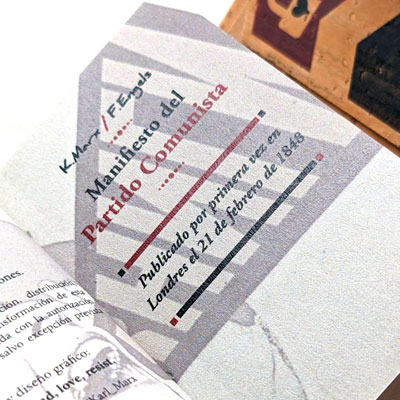 K. Marx / F. Engels
Manifiesto del
Partido Comunista
Publicado por primera vez en
Londres el 21 de febrero de 1848
ones.
ción, distribución
nsformación de esta
da con la autorización
salvo excepción prevista
y diseño gráfico:
ad, love, resist.
Karl Marx